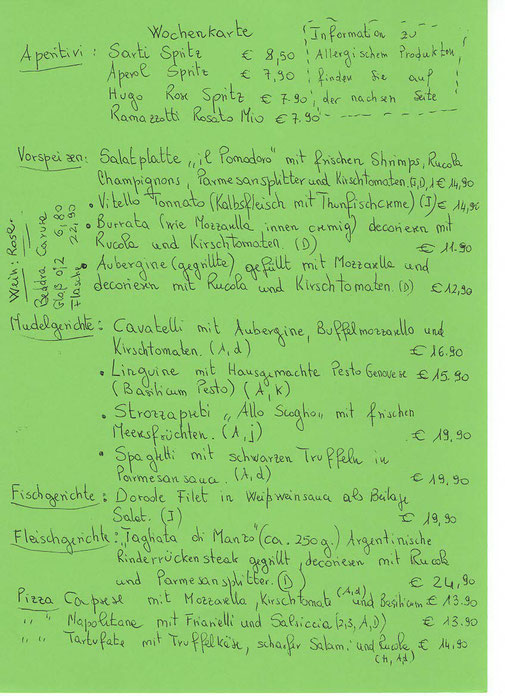 Wochenkarte
Information zu
Allergischem Produkten,
finden Sie auf
der nachsen Seite
Aperitivi : Sarti Spritz € 8,50
Aperol Spritz € 7,90
Hugo Rose Spritz € 7.90
Ramazzotti Rosato Mio € 7.90
Vorspeizen: Salatplatte „il Pomodoro" mit frischen Shrimps, Rucola
Champignons, Parmesansplitter und Kirschtomaten. € 14,90
• Vitello Tonnato (Kalbsfleisch mit Thunfischcreme) (I) € 14,90
• Burrata (wie Mozzarella innen cremig) decorieren mit
Rucola und Kirschtomaten. (D) € 11.90
• Aubergine (gegrillte) gefüllt mit Mozzarella und
decorieren mit Rucola und Kirschtomaten. (D) € 12,90
Wein: Rose
Glaß 0,2 6,80
Flasche 22,90
Nudelgerichte: Cavatelli mit Aubergine, Büffelmozzarella und
Kirschtomaten. (A,d) € 16.90
• Linguine mit Hausgemachte Pesto Genovese € 15.90
(Basilicum Pesto) (A,K)
• Strozzapreti „Allo Scoglio" mit frischen
Meeresfrüchten. (A,j) € 19,90
• Spagetti mit schwarzen Truffeln in
Parmesansauce. (A,d) € 19,90
Fischgerichte: Dorade Filet in Weißweinsauce als Beilage
Salat. (I) € 19,90
Fleischgerichte: „Tagliata di Manzo" (ca. 250 g.) Argentinische
Rinderrückensteak gegrillt, decorieren mit Rucola
und Parmesansplitter. (D) € 24,90
Pizza Caprese mit Mozzarella, Kirschtomate (A,d) und Basilicum € 13.90
" " Napoletane mit Friarielli und Salsiccia (2,3,A,D) € 13.90
" " Tartufate mit Truffelkäse, scharfer Salami und Rucola € 14,90